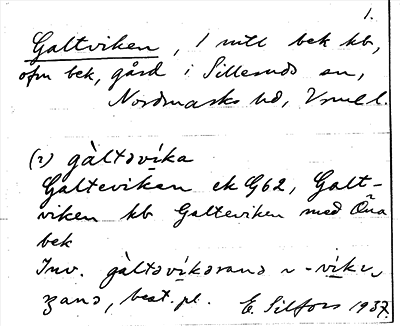 1.
Galtviken, 1 mtl bek kb,
ofm bek, gård i Silleruds sn,
Nordmarks hd, Vrml l.
(2) gàltəvíka
Galteviken ek G62, Galt-
viken kb Galteviken med Öna
bek
Inv. gàltəvíkəranə ~ -víkı
ʒanə, best. pl. E. Silfors 1937